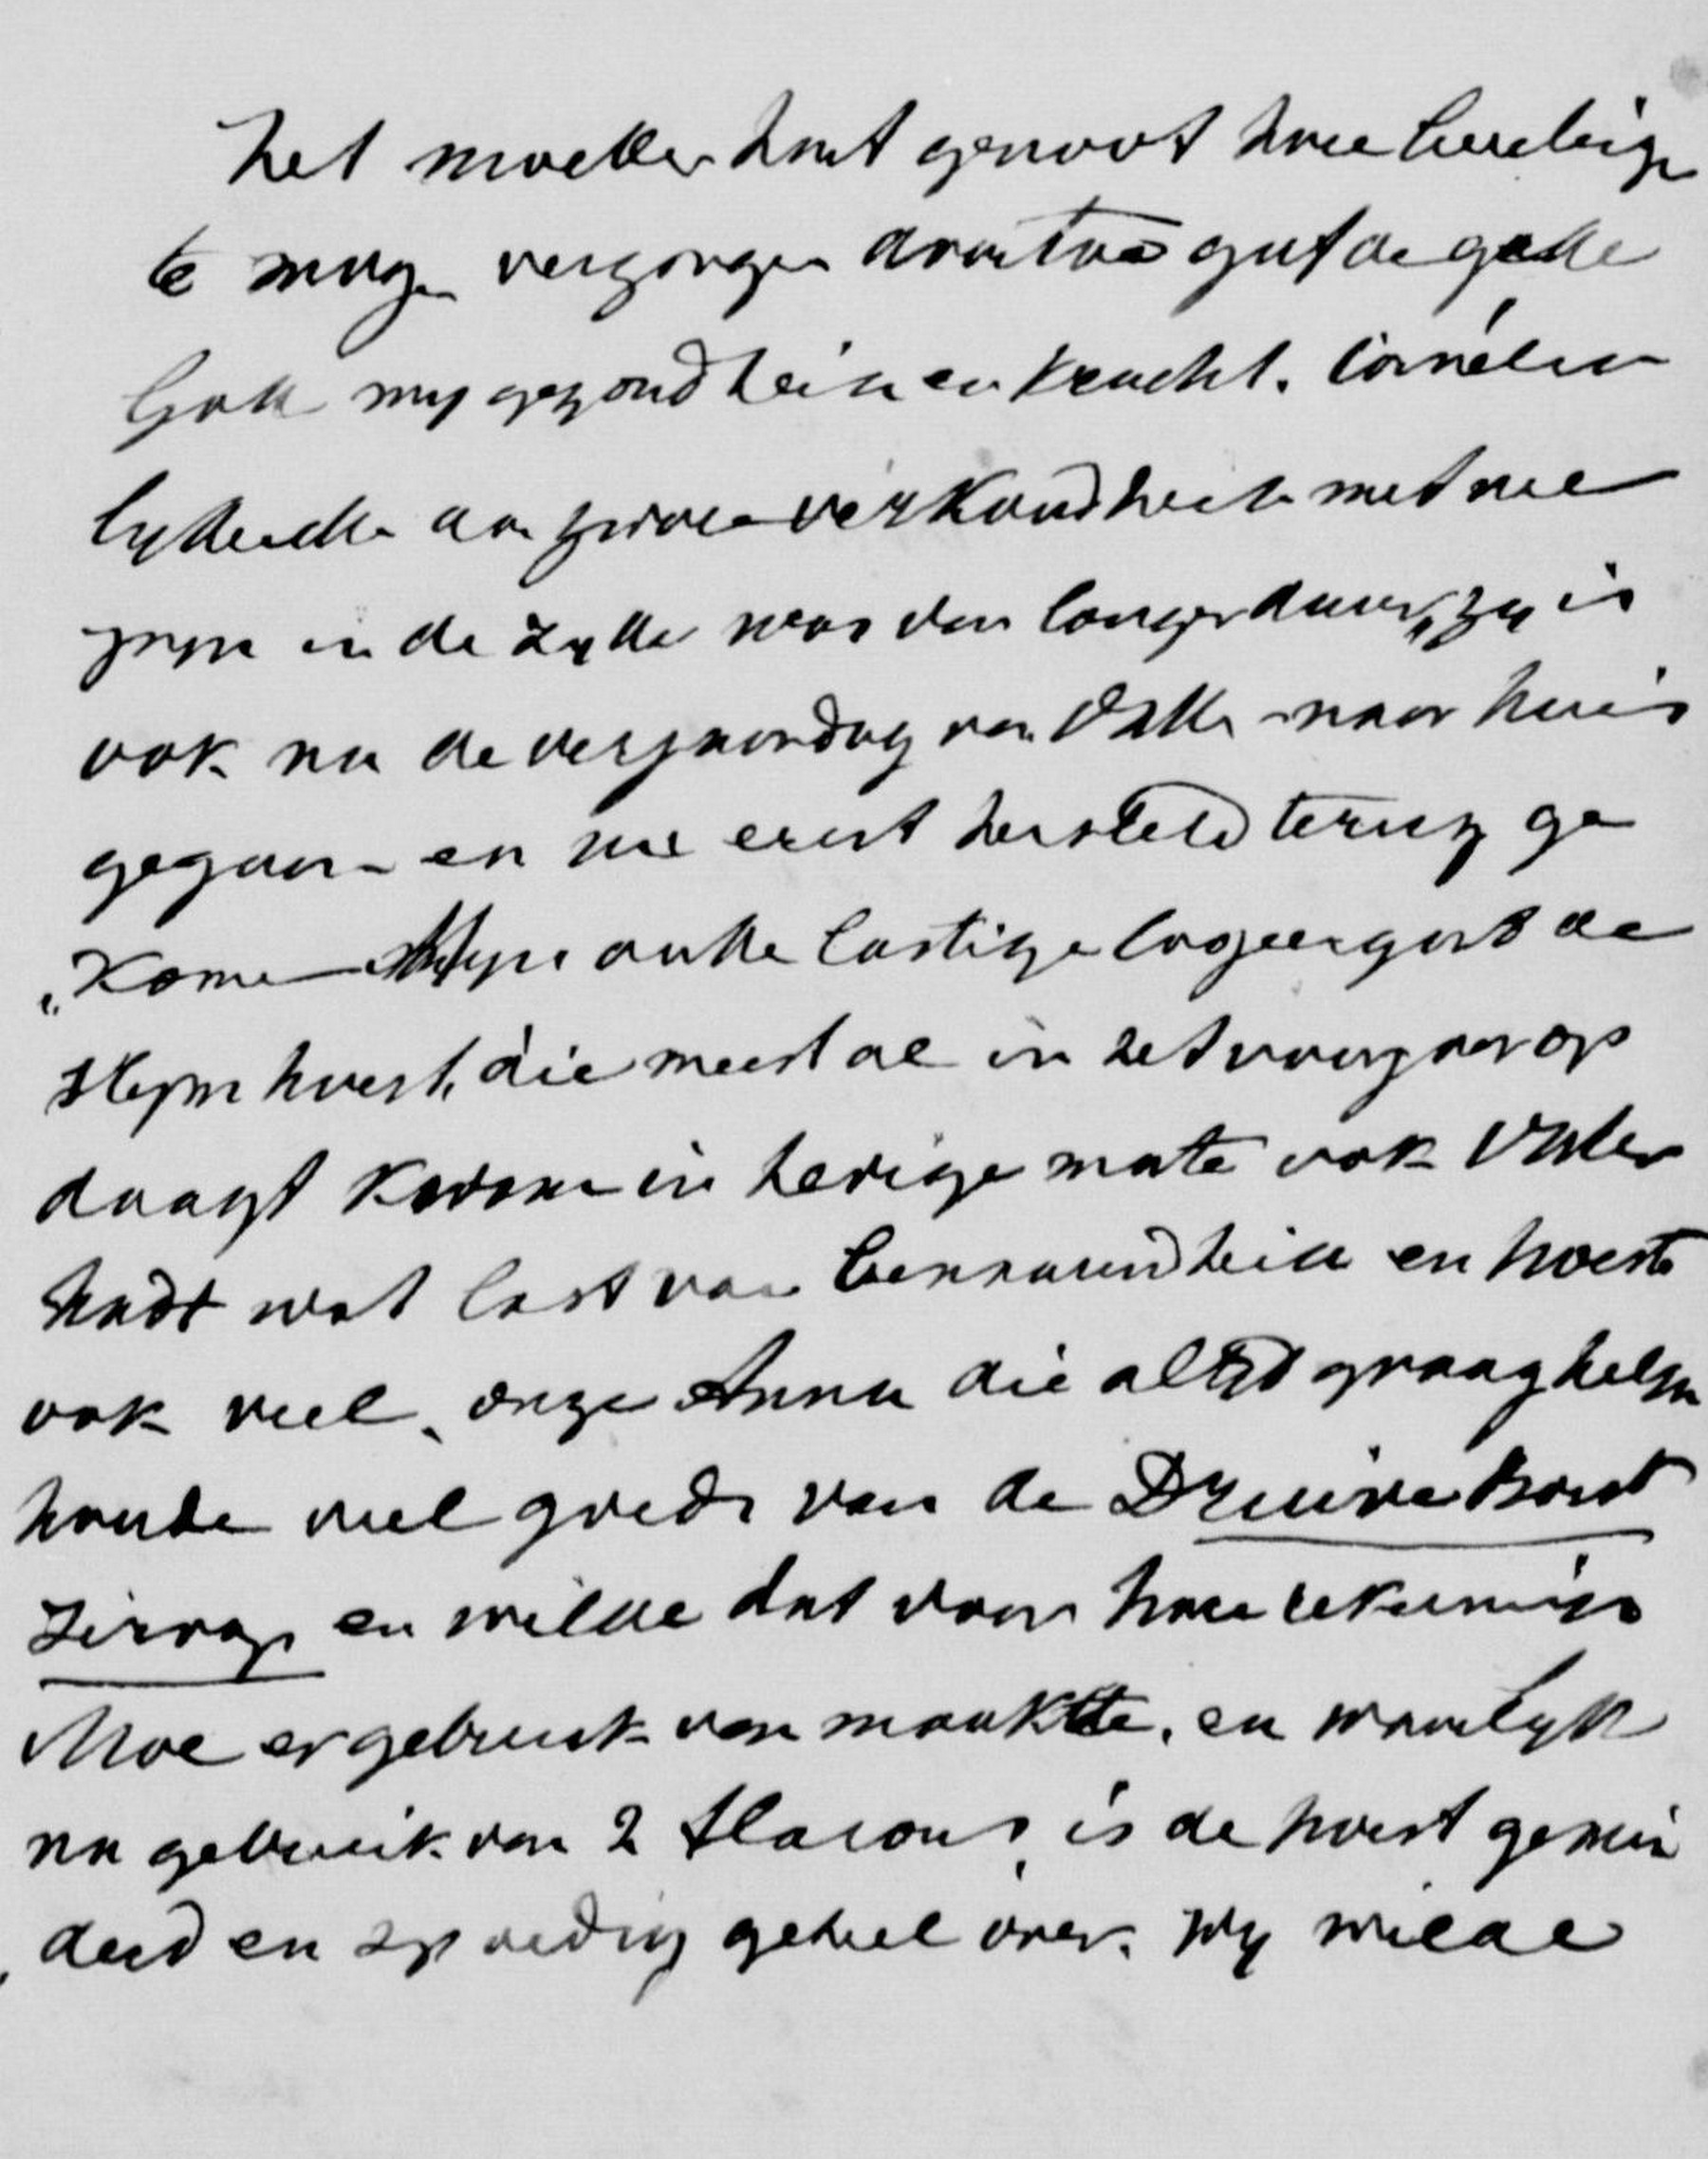 het moeder hart genoot hare lieveling
te mogen verzorgen daartoe gaf de goede
God my gezondheid en kracht. Cornelia
lydende aan zware verkoudheid met veel
pyn in de zyde was van langer duur, zy is
ook na de verjaardag van Vader naar huis
gegaan en nu eerst hersteld terug ge
„komen Myn oude lastige logeergast de
slym hoest, die meestal in het voorjaar op
daagt kwam in hevige mate ook Vader
hadt wat last van benaauwdheid en hoeste
ook veel, onze Anna die altyd graag helpen
hoorde veel goeds van de Druive Borst
Siroop en wilde dat voor hare rekening
Moe er gebruik van maakte, en waarlyk
na gebruik van 2 flacons, is de hoest gemin
„derd en spoedig geheel over. Wy wilde